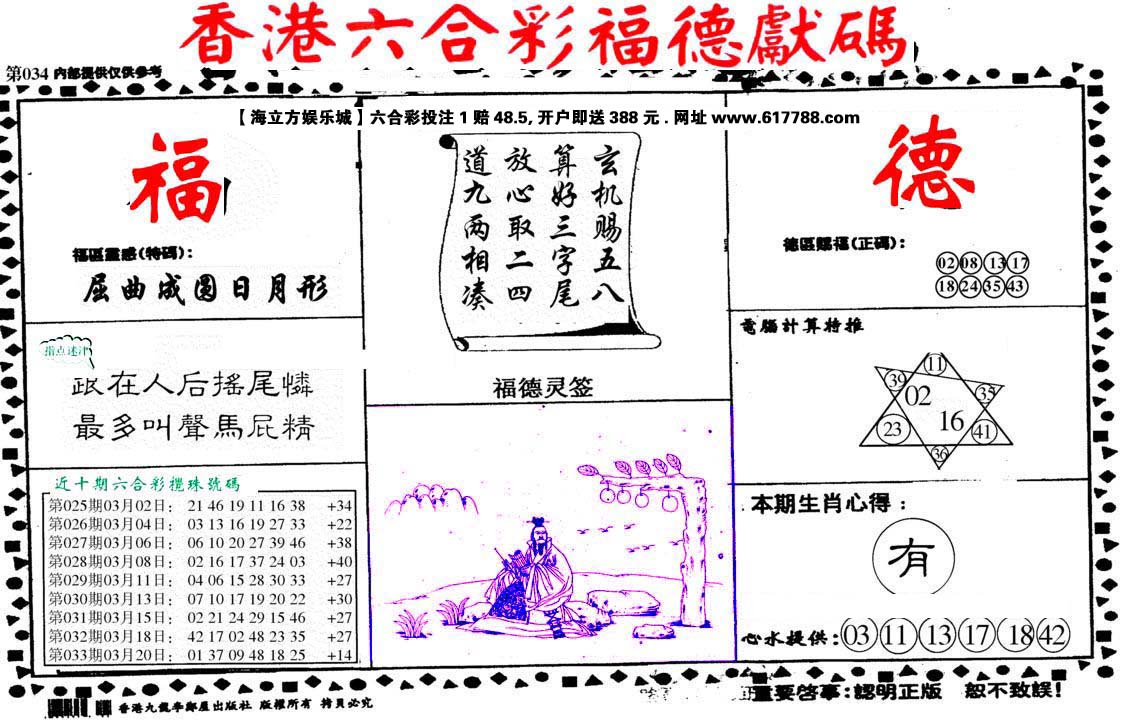 香港六合彩福德獻碼
第034 内部提供仅供参考
【海立方娱乐城】六合彩投注 1 赔 48.5, 开户即送 388 元 . 网址 www.617788.com
福
福區靈感(特碼):
屈曲成圆日月形
指点迷津
跟在人后搖尾憐
最多叫聲馬屁精
近十期六合彩攪珠號碼
第025期03月02日: 21 46 19 11 16 38 +34
第026期03月04日: 03 13 16 19 27 33 +22
第027期03月06日: 06 10 20 27 39 46 +38
第028期03月08日: 02 16 17 37 24 03 +40
第029期03月11日: 04 06 15 28 30 33 +27
第030期03月13日: 07 10 17 19 20 22 +30
第031期03月15日: 02 21 24 29 15 46 +27
第032期03月18日: 42 17 02 48 23 35 +27
第033期03月20日: 01 37 09 48 18 25 +14
玄机赐五八
算好三字尾
放心取二四
道九两相凑
福德灵签
德
德區賜福(正碼):
02 08 13 17
18 24 35 43
電腦計算特推
11
39 02 35
23 16 41
36
本期生肖心得:
有
心水提供: 03 11 13 17 18 42
香港九龍半鄰屋出版社 版權所有 拷貝必究
重要啓事:認明正版 恕不致誤!